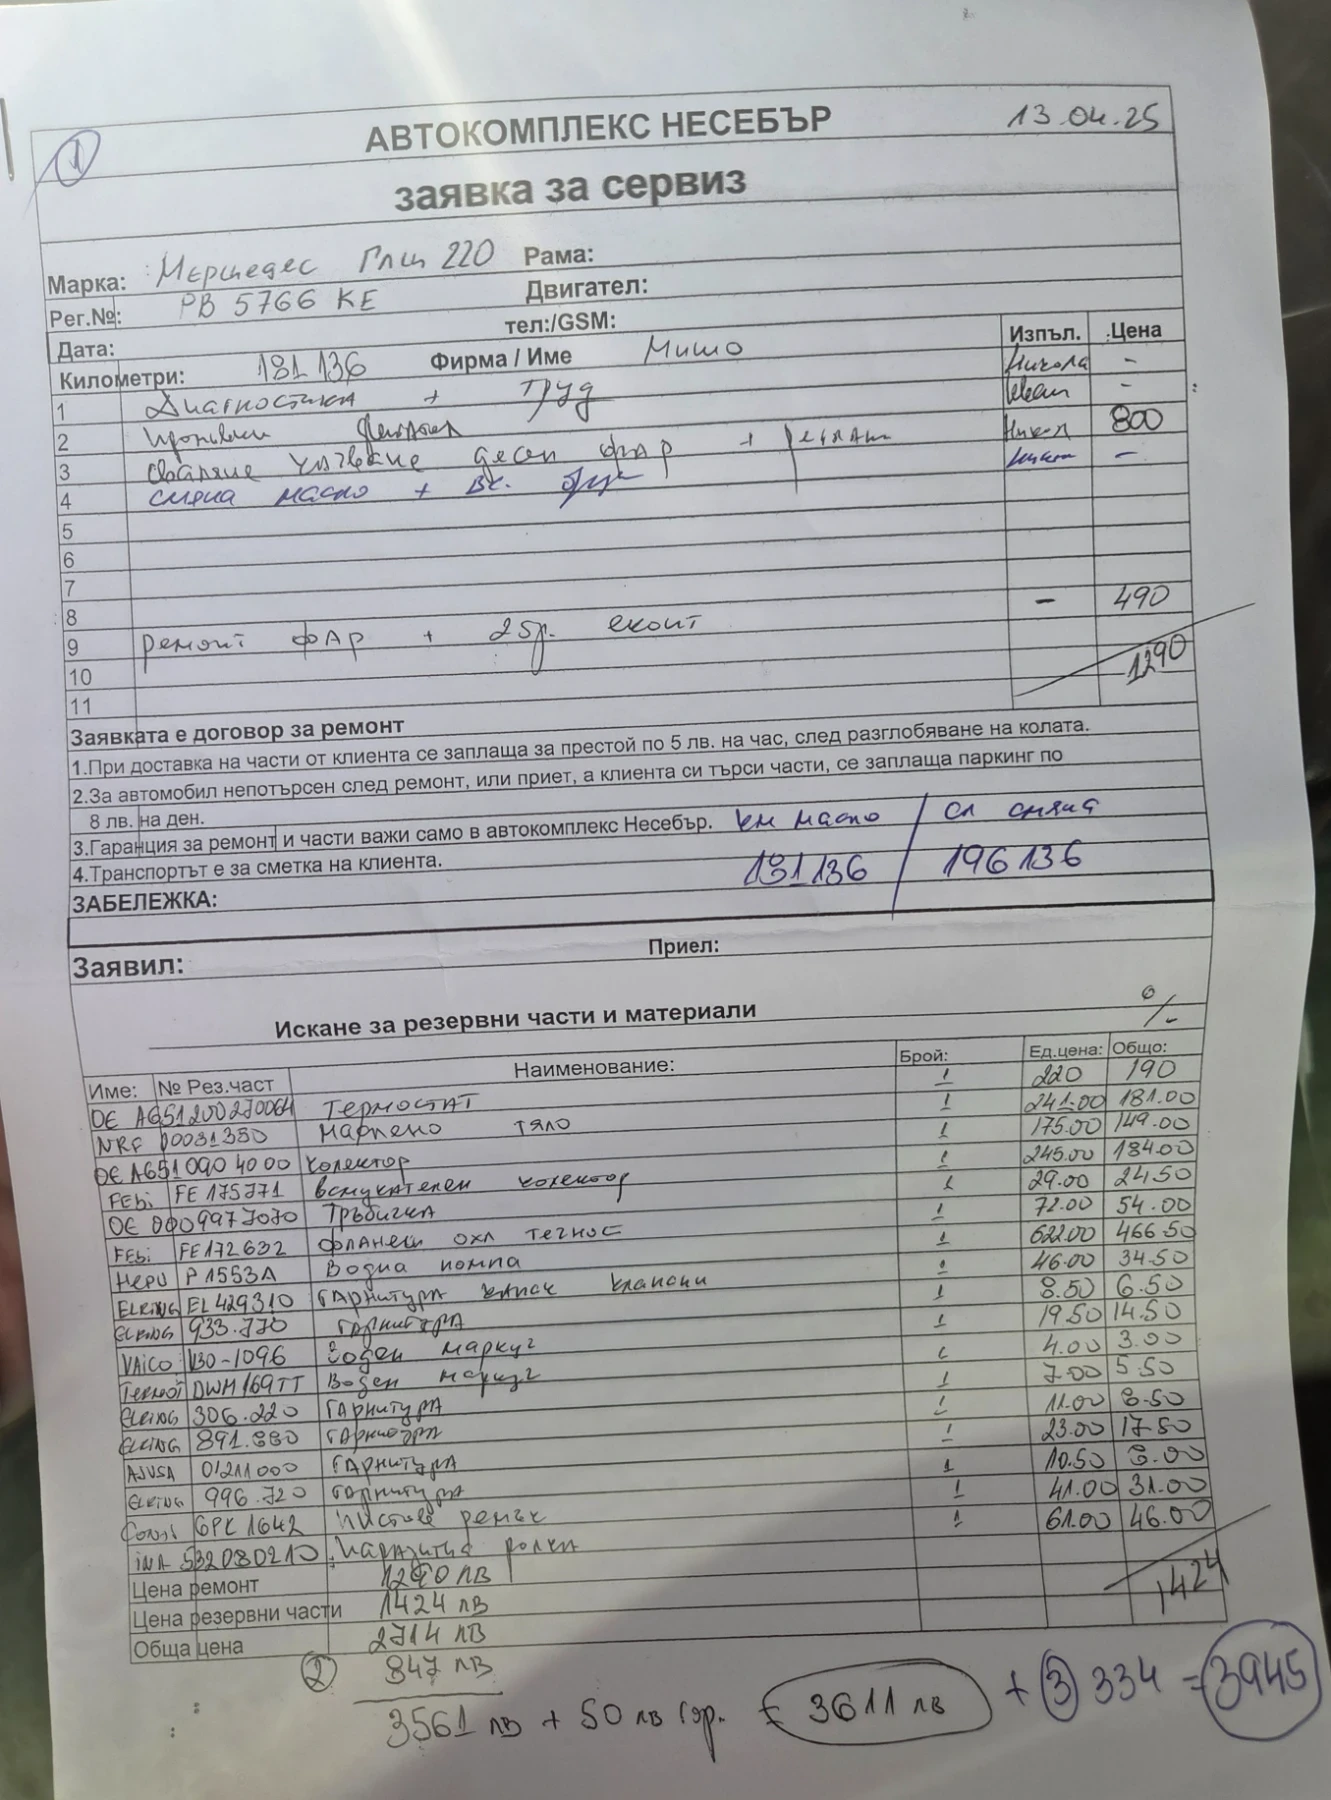 1
АВТОКОМПЛЕКС НЕСЕБЪР 13.04.25
заявка за сервиз
Марка: Мерцедес Глц 220 Рама:
Рег.№: РВ 5766 КЕ Двигател:
Дата: тел:/GSM:
Километри: 181 136 Фирма / Име Мишо Изпъл. Цена
1 Диагностика + труд Никола -
2 -
3 сваляне десен фар + 800
4 смяна масло + -
5
6
7
8
9 ремонт фар + 25р. - 490
10
11 1290
Заявката е договор за ремонт
1.При доставка на части от клиента се заплаща за престой по 5 лв. на час, след разглобяване на колата.
2.За автомобил непотърсен след ремонт, или приет, а клиента си търси части, се заплаща паркинг по
8 лв. на ден.
3.Гаранция за ремонт и части важи само в автокомплекс Несебър. км масло / сл смяна
4.Транспортът е за сметка на клиента. 181136 / 196136
ЗАБЕЛЕЖКА:
Заявил: Приел:
Искане за резервни части и материали %
Име: № Рез.част Наименование: Брой: Ед.цена: Общо:
OE A651200270064 Термостат 1 220 190
NRF Маслено тяло 1 241.00 181.00
OE A651 090 4000 колектор 1 175.00 149.00
FEbi FE175771 всмукателен колектор 1 245.00 184.00
OE 0009977070 Тръбичка 1 29.00 24.50
FEbi FE172632 фланец охл течнос 1 72.00 54.00
HEPU P1553A Водна помпа 1 622.00 466.50
ELRING EL429310 гарнитура клапани 1 46.00 34.50
ELRING 933.770 гарнитура 1 8.50 6.50
VAICO V30-1096 Воден маркуч 1 19.50 14.50
Termot DWM169TT Воден маркуч 1 4.00 3.00
ELRING 306.220 гарнитура 1 7.00 5.50
ELRING 891.880 гарнитура 1 11.00 8.50
AJUSA 01211000 гарнитура 1 23.00 17.50
ELRING 996.720 гарнитура 1 10.50 8.00
6PK 1642 Пистов ремък 1 41.00 31.00
INA 532080210 Паразитна ролка 1 61.00 46.00
Цена ремонт 1290 лв 1424
Цена резервни части 1424 лв
Обща цена 2714 лв
2 847 лв
3561 лв + 50 лв гор. = 3611 лв + 3 334 = 3945